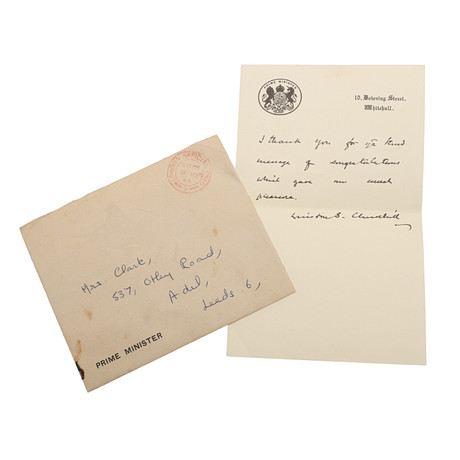 PRIME MINISTER
10, Downing Street,
Whitehall.
I thank you for yr kind
message of congratulations
which gave me much
pleasure.
Winston S. Churchill
Mrs Clark,
537, Otley Road,
Adel,
Leeds 6,
PRIME MINISTER